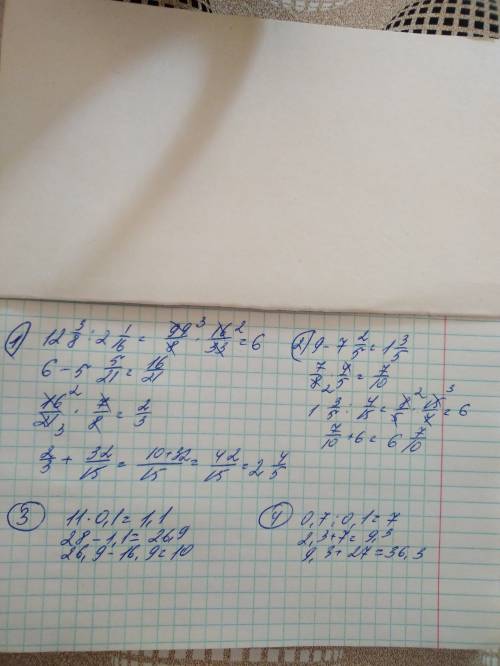 1) 12 3/8 : 2 1/16 = 99/8 3 · 16/33 2 = 6
6 - 5 5/21 = 16/21
16/21 2 3 · 7/8 = 2/3
2/3 + 32/15 = 10+32/15 = 42/15 = 2 4/5
2) 9 - 7 2/5 = 1 3/5
7/8 2 · 4/5 = 7/10
1 3/5 : 4/15 = 8/5 2 · 15/4 3 = 6
7/10 + 6 = 6 7/10
3 11 · 0,1 = 1,1
28 - 1,1 = 26,9
26,9 - 16,9 = 10
4 0,7 : 0,1 = 7
2,3 + 7 = 9,3
9,3 + 27 = 36,3